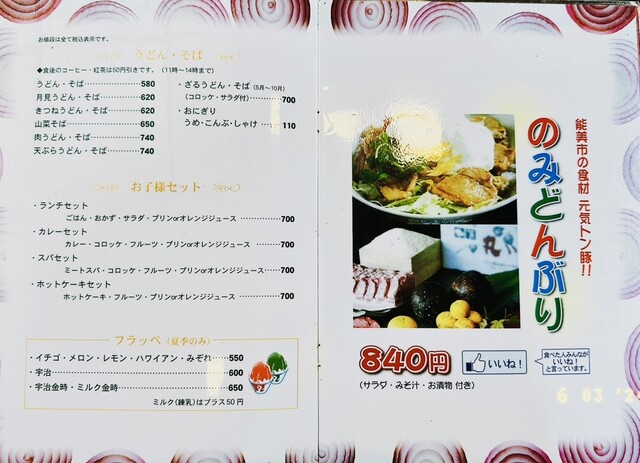 お値段は全て税込表示です。
うどん・そば
◆食後のコーヒー・紅茶は50円引きです。(11時〜14時まで)
うどん・そば 580
月見うどん・そば 620
きつねうどん・そば 620
山菜そば 650
肉うどん・そば 740
天ぷらうどん・そば 740
・ざるうどん・そば (5月〜10月)
(コロッケ・サラダ付) 700
・おにぎり
うめ・こんぶ・しゃけ 110
お子様セット
・ランチセット
ごはん・おかず・サラダ・プリンorオレンジジュース 700
・カレーセット
カレー・コロッケ・フルーツ・プリンorオレンジジュース 700
・スパセット
ミートスパ・コロッケ・フルーツ・プリンorオレンジジュース 700
・ホットケーキセット
ホットケーキ・フルーツ・プリンorオレンジジュース 700
フラッペ (夏季のみ)
・イチゴ・メロン・レモン・ハワイアン・みぞれ 550
・宇治 600
・宇治金時・ミルク金時 650
ミルク(練乳)はプラス50円
能美市の食材 元気トン豚!!
のみどんぶり
840円
いいね!
食べた人みんなが
いいね!
と言っています。
(サラダ・みそ汁・お漬物 付き)
6 03